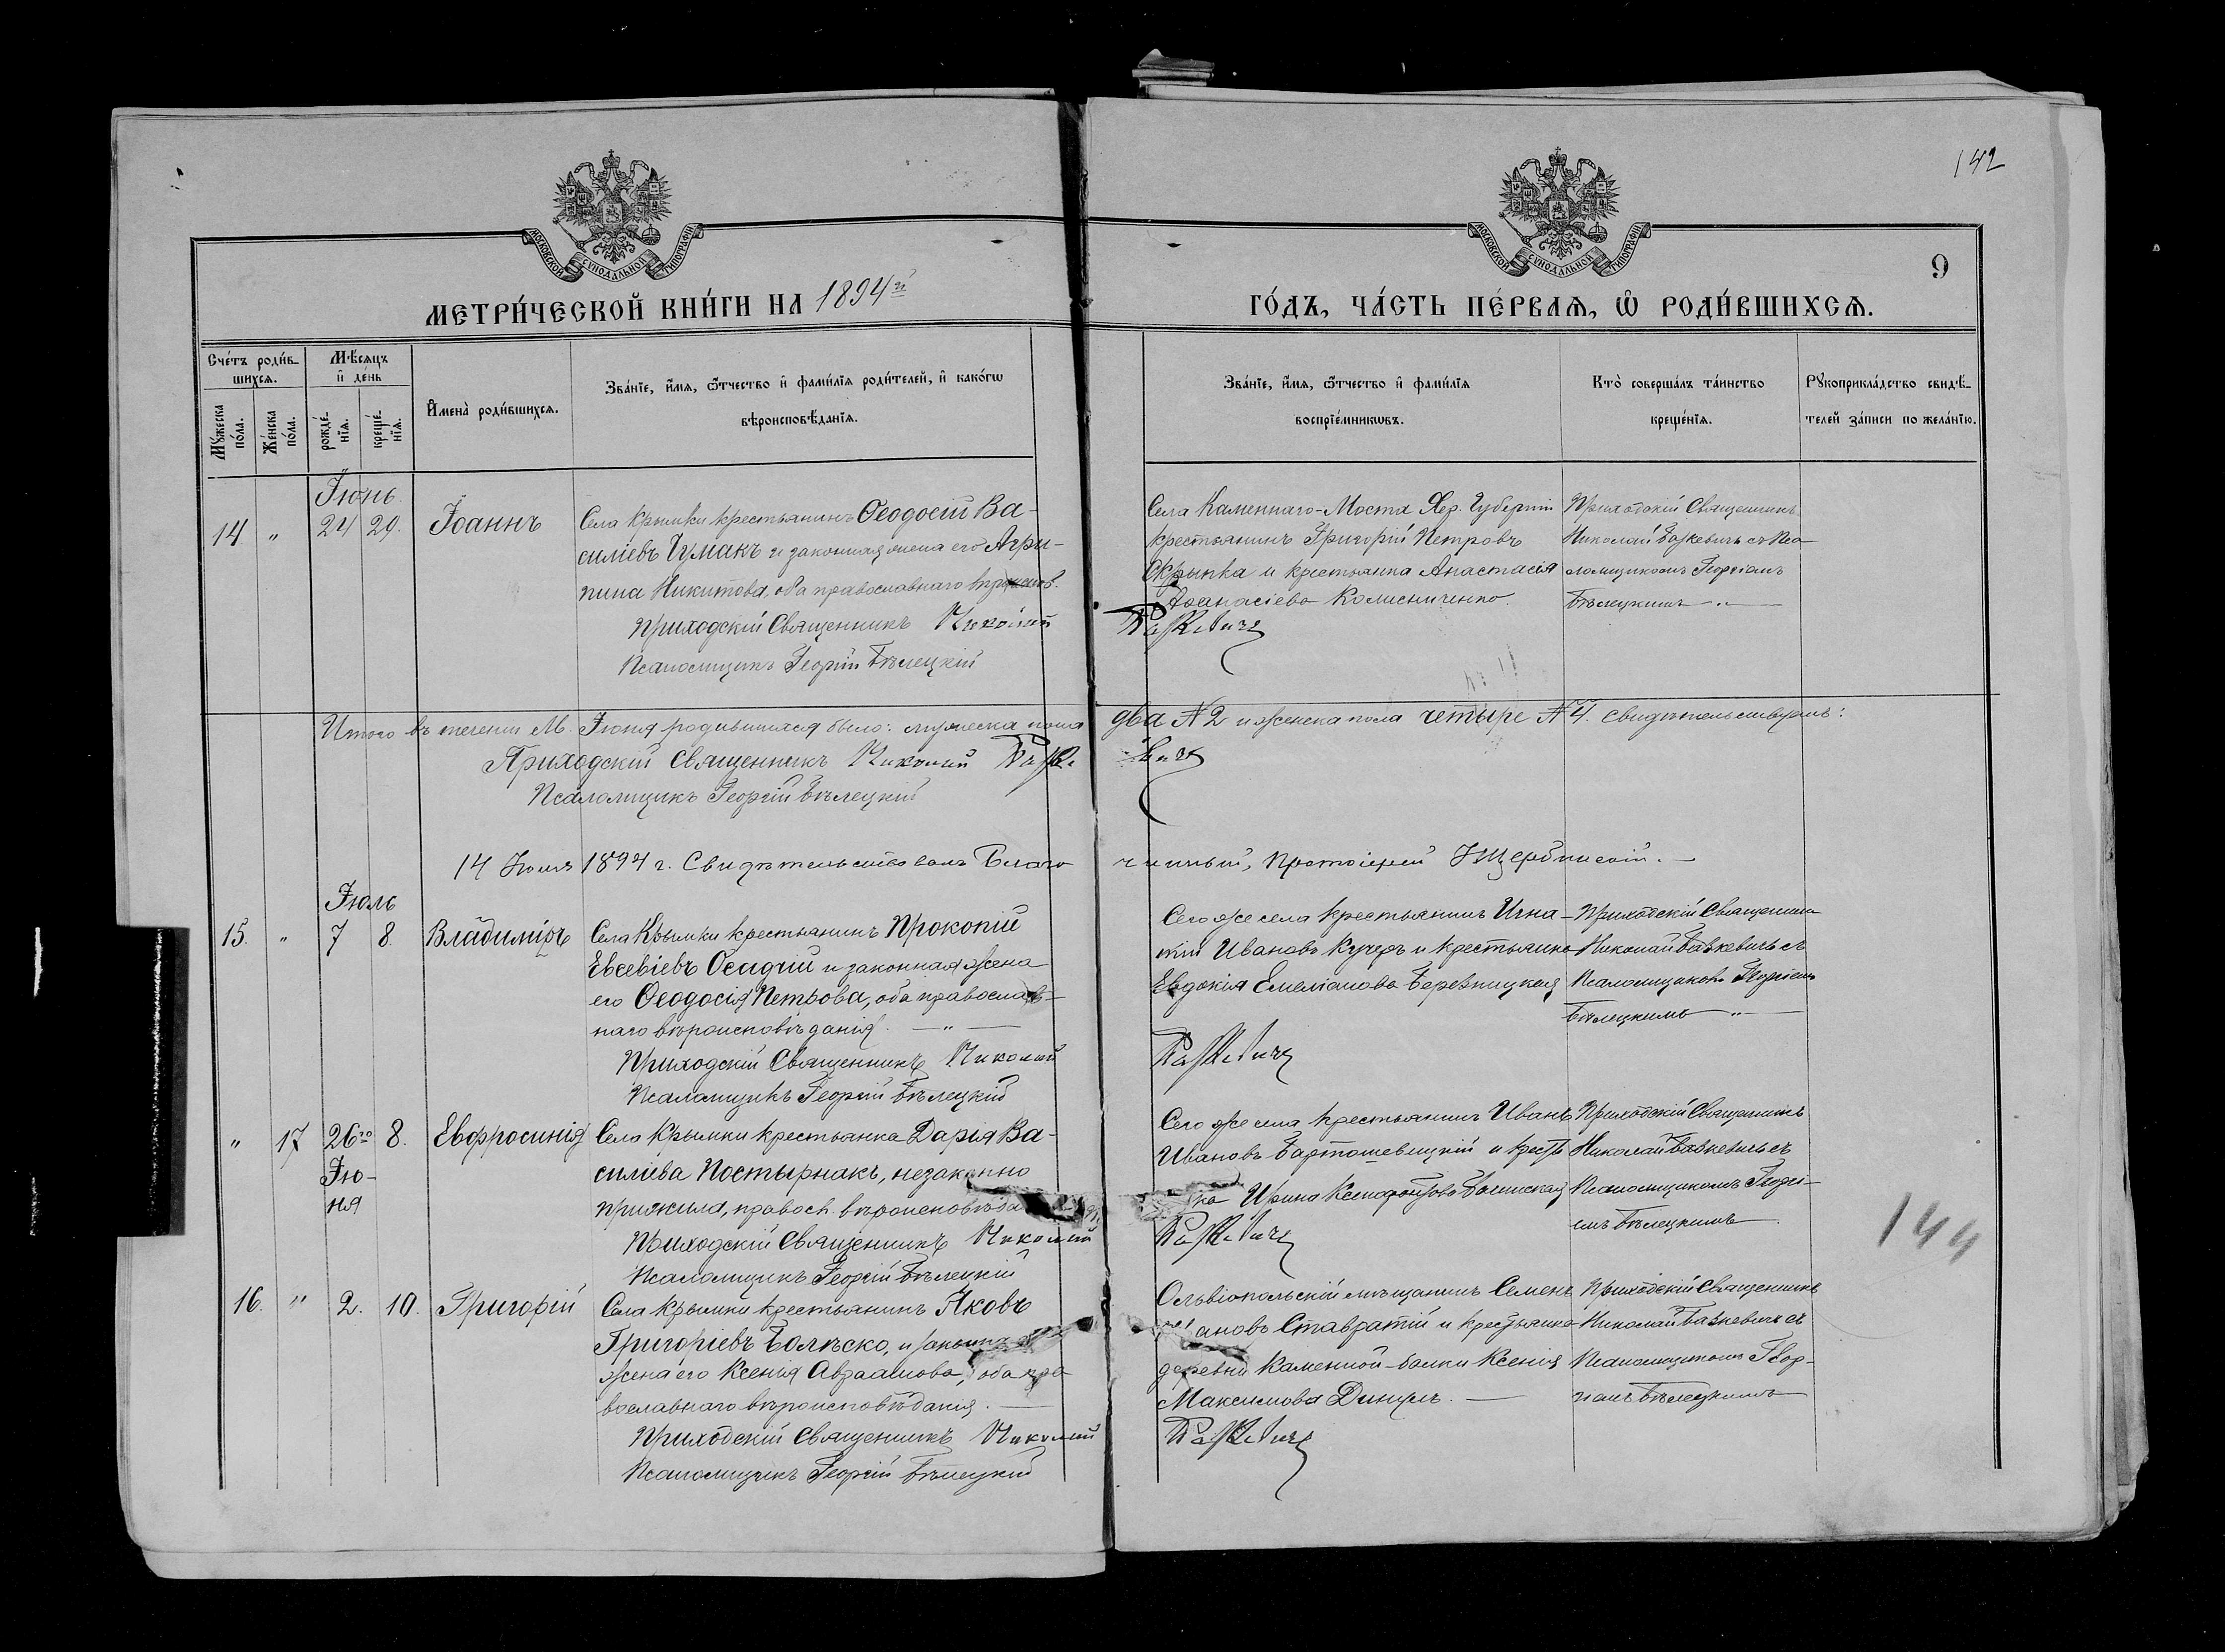 142
МОСКОВСКОЙ СѴНОДАЛЬНОЙ ТИПОГРАФІИ
МОСКОВСКОЙ СѴНОДАЛЬНОЙ ТИПОГРАФІИ
9
МЕТРИ́ЧЕСКОЙ КНИ́ГИ НА 1894й
ГО́ДЪ, ЧА́СТЬ ПЕ́РВАѦ, Ѽ РОДИ́ВШИХСѦ.
Сче́тъ роди́в-
шихсѧ.
Мѣ́сѧцъ
и҆ де́нь
Мꙋ́жеска
по́ла.
Же́нска
по́ла.
рожде́-
нїѧ.
креще́-
нїѧ.
И҆мена̀ роди́вшихсѧ.
Зва́нїе, и҆́мѧ, ѻ҆́тчество и҆ фами́лїѧ роди́телей, и҆ како́гѡ
вѣроисповѣ́данїѧ.
Зва́нїе, и҆́мѧ, ѻ҆́тчество и҆ фами́лїѧ
воспрїе́мникѡвъ.
Кто̀ соверша́лъ та́инство
креще́нїѧ.
Рꙋкоприкла́дство свидѣ́-
телей за́писи по жела́нїю.
Іюнь.
14. " 24 29. Іоаннъ
Села Крымки крестьянинъ Ѳеодосій Ва-
силіевъ Чумакъ и законная жена его Агри-
пина Никитова, оба православнаго вѣроиспов.
Приходскій Священникъ Николай
Псаломщикъ Георгій Бѣлецкій
Села Каменнаго-Моста Хер. Губерніи
крестьянинъ Григорій Петровъ
Скрыпка и крестьянка Анастасія
Аѳанасіева Колисниченко.
Базкевичъ
Приходскій Священникъ
Николай Базкевичъ съ Пса-
ломщикомъ Георгіемъ
Бѣлецкимъ — " —
Итого въ теченіи М. Іюня родившихся было: мужеска пола два №2 и женска пола четыре №4. Свидѣтельствуемъ:
Приходскій Священникъ Николай Базкевичъ
Псаломщикъ Георгій Бѣлецкій
14 Іюля 1894 г. Свидѣтельствовалъ Благочинный, Протоіерей Щербинскій. —
Іюль
15. " 7 8. Владиміръ
Села Крымки крестьянинъ Прокопій
Евсевіевъ Осадчій и законная жена
его Ѳеодосія Петрова, оба православ-
наго вѣроисповѣданія. — " —
Приходскій Священникъ Николай
Псаломщикъ Георгій Бѣлецкій
Сего же села крестьянинъ Игна-
тій Ивановъ Кучеръ и крестьянка
Евдокія Емеліанова Березницкая
Базкевичъ
Приходскій Священникъ
Николай Базкевичъ съ
Псаломщикомъ Георгіемъ
Бѣлецкимъ — " —
" 17 26го Іюня 8. Евфросинія
Села Крымки крестьянка Дарія Ва-
силіева Постырнакъ, незаконно
прижила, правосл. вѣроисповѣда
Приходскій Священникъ Николай
Псаломщикъ Георгій Бѣлецкій
Сего же села крестьянинъ Иванъ
Ивановъ Бартошевицкій и кресть
ка Ирина Ксенофонтова
Базкевичъ
Приходскій Священникъ
Николай Базкевичъ съ
Псаломщикомъ Георгі-
емъ Бѣлецкимъ.
144
16. " 2. 10. Григорій
Села Крымки крестьянинъ Яковъ
Григоріевъ Болѣско, и законная
жена его Ксенія Авраамова, оба пра
вославнаго вѣроисповѣданія. —
Приходскій Священникъ Николай
Псаломщикъ Георгій Бѣлецкій
Ольвіопольскій мѣщанинъ Семенъ
ановъ Ставратій и крестьянка
деревни Каменной-балки Ксенія
Максимова —
Базкевичъ
Приходскій Священникъ
Николай Базкевичъ съ
Псаломщикомъ Геор-
гіемъ Бѣлецкимъ